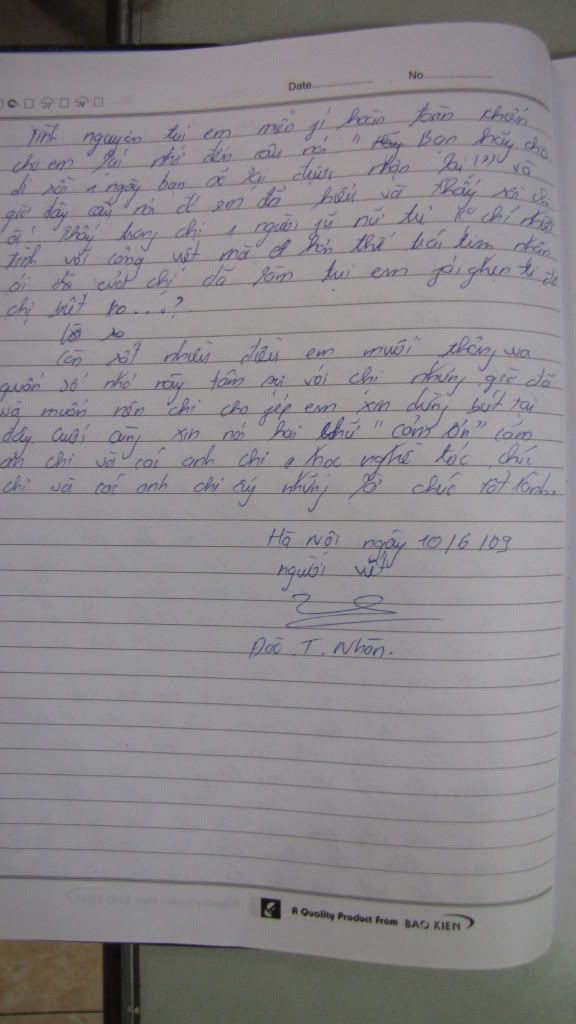 Date............... No.................
Tình nguyện tụi em miễn fí hoàn toàn khiến
cho em lại nhớ đến câu nói " Bạn hãy cho
đi rồi 1 ngày bạn sẽ lại được nhận lại !" và
giờ đây câu nói đó em đã hiểu và thấy rồi
thấy trong chị 1 người nữ tử ko chỉ nhiệt
tình với công việt mà hơn thế trái tim nhân
ái của chị đã làm tụi em fải ghen tị đó
chị bựt ko...?
Còn rất nhiều điều em muốn thông wa
quấn sổ nhỏ này tâm sự với chị nhưng giờ đã
và muốn nên chị cho fép em xin dừng bút tại
đây. Cuối cùng xin nói hai chữ " cảm ơn" cảm
ơn chị và các anh chị học nghề tóc, chúc
chị và các anh chị những lời chúc tốt lành.
Hà Nội ngày 10/6/09
người viết
Đào . T . Nhàn.
A Quality Product From BAO KIEN